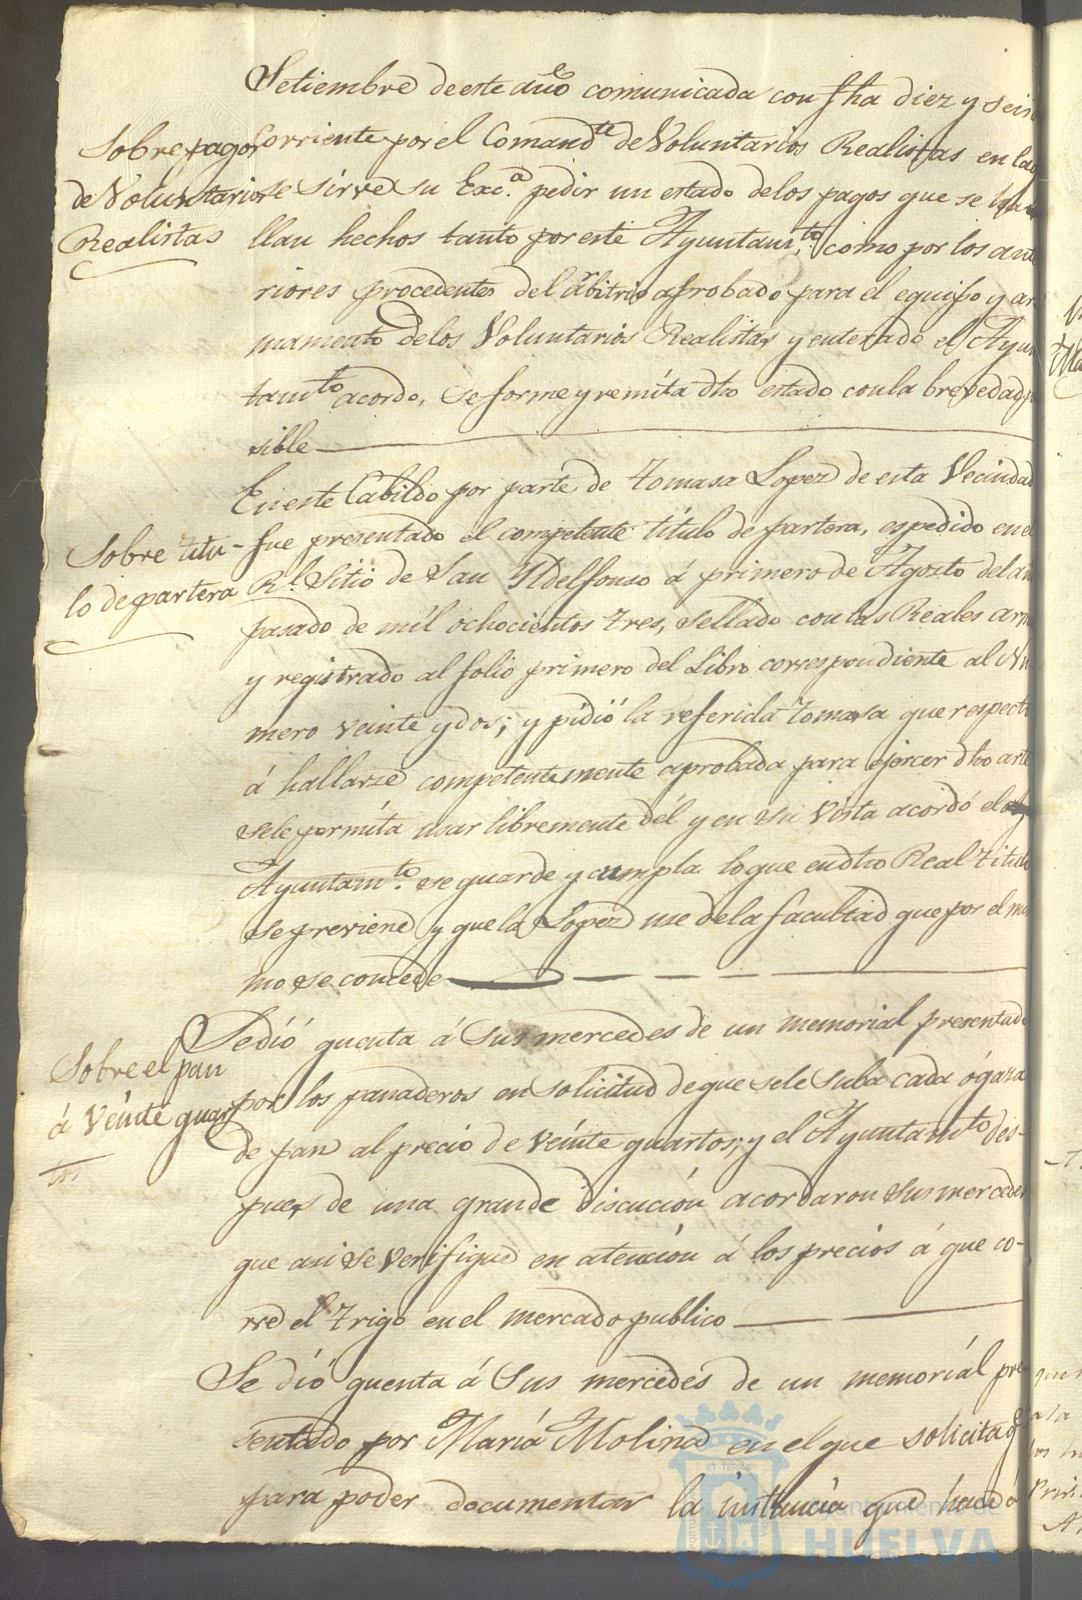 Setiembre de este año comunicada con fha diez y seis
Sobre pagos
de Voluntarios
Realistas
corriente por el Comandte de Voluntarios Realistas en la q
se sirve su Exc.a pedir un estado delos pagos que se ha
llan hechos tanto por este Ayuntam.to como por los ante
riores procedentes del arbitrio aprobado para el equipo y ar
mamento delos Voluntarios Realistas y enterado el Ayun
tamto acordo, se forme y remita dho estado conla brevedad po
sible
En este Cabildo por parte de Tomasa Lopez de esta Vecindad
Sobre titu-
lo de partera
fue presentado el competente titulo de partera, espedido en el
Rl. Sitio de San Yldelfonso á primero de Agosto del año
pasado de mil ochocientos tres, sellado con las Reales arm
y registrado al folio primero del Libro correspondiente al Nu
mero veinte y dos; y pidió la referida Tomasa que respecto
á hallarse competentemente aprobada para ejercer dho arte
sele permita usar libremente dél y en su vista acordó el
Ayuntamto. se guarde y cumpla lo que en dho Real Titulo
se previene y que la Lopez use dela facultad que por el mis
mo se concede
Se dió quenta á Sus mercedes de un memorial presentado
Sobre el pan
á veinte quar
tos
por los panaderos en solicitud de que sele suba cada ógaza
de pan al precio de veinte quartos; y el Ayuntamto des-
pues de una grande discucion acordaron sus mercedes
que asi se verifique en atencion á los precios á que co-
rre el trigo en el mercado publico
Se dió quenta á Sus mercedes de un memorial pre
sentado por Maria Molina en el que solicita q
para poder documentar la instancia que hace á
Ayuntamiento de
HUELVA